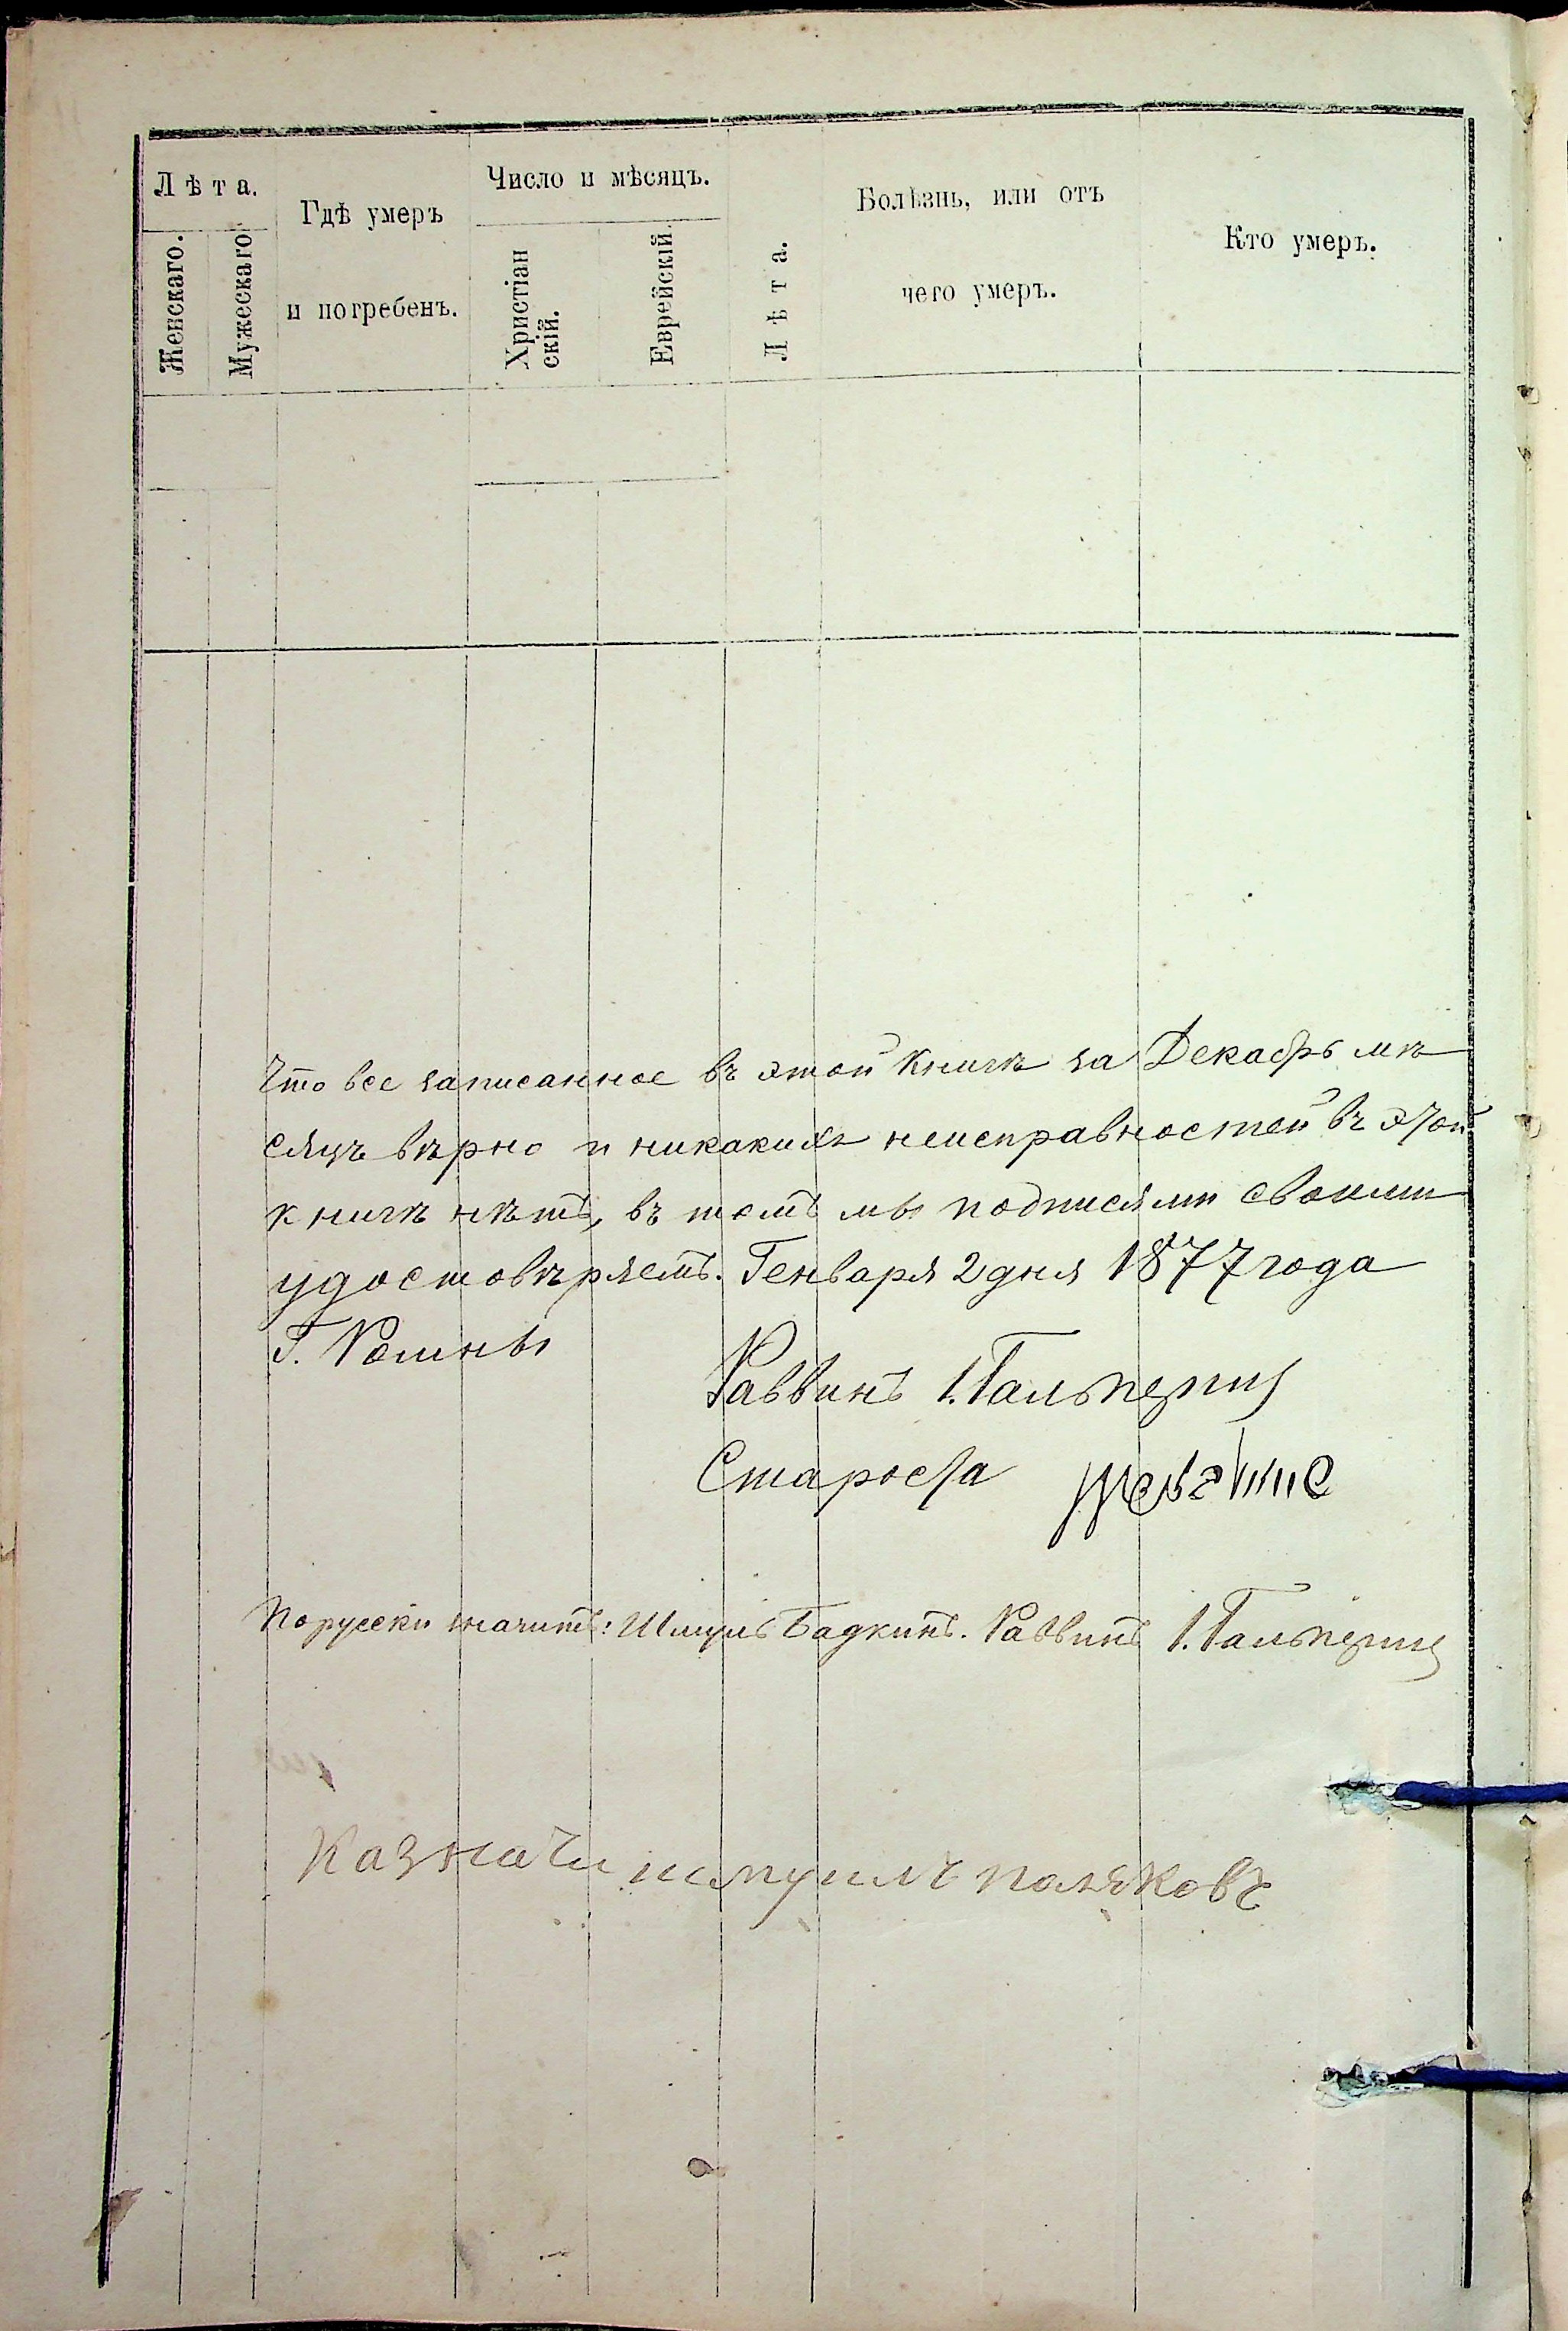 Лѣта.
Женскаго.
Мужескаго
Гдѣ умеръ
и погребенъ.
Число и мѣсяцъ.
Христіан
скій.
Еврейскій.
Лѣта.
Болѣзнь, или отъ
чего умеръ.
Кто умеръ.
Что все записанное въ этой книгѣ за Декабрь мѣ
сяцъ вѣрно и никакихъ неисправностей въ этой
книгѣ нѣтъ, въ томъ мы подписями своими
удостовѣряемъ. Генваря 2 дня 1877 года
Г. Ромны
Раввинъ І. Гальперинъ
Староста
По русски значитъ: Шмуль Бадкинъ. Раввинъ І. Гальперинъ
Казначи поляковъ